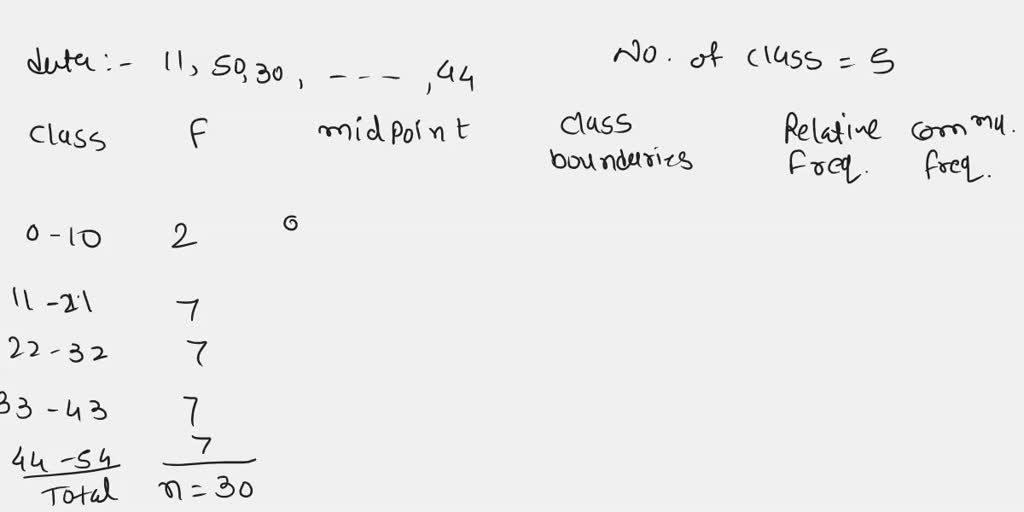 data:- 11, 50, 30, ---- , 44
No. of class = 5
class F midpoint class boundaries Relative Freq. commu. freq.
0-10 2 0
11-21 7
22-32 7
33-43 7
44-54 7
Total n=30